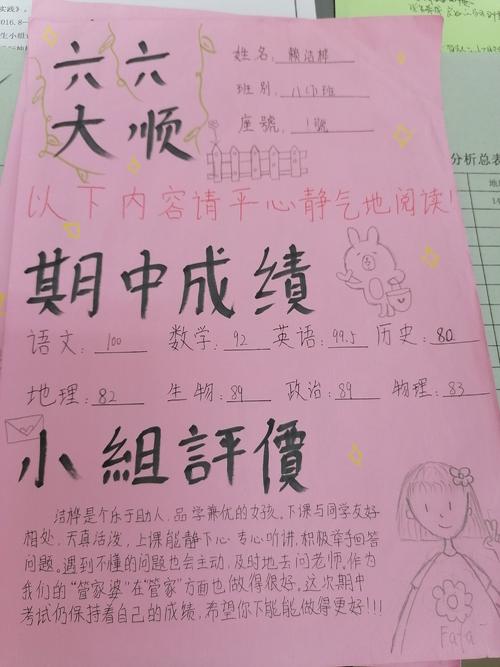 六六
大顺
姓名：赖洁桦
班别：八(1)班
座號：1號
以下内容请平心静气地阅读!
期中成績
语文：100 数学：92 英语：99.5 历史：80
地理：82 生物：89 政治：89 物理：83
小組評價
洁桦是个乐于助人，品学兼优的女孩。下课与同学友好
相处，天真活泼，上课能静下心，专心听讲，积极举手回答
问题。遇到不懂的问题也会主动，及时地去问老师。作为
我们的“管家婆”在“管家”方面也做得很好。这次期中
考试仍保持着自己的成绩，希望你下能能做得更好!!!
Fafa
分析总表
实践》。
2016.8—